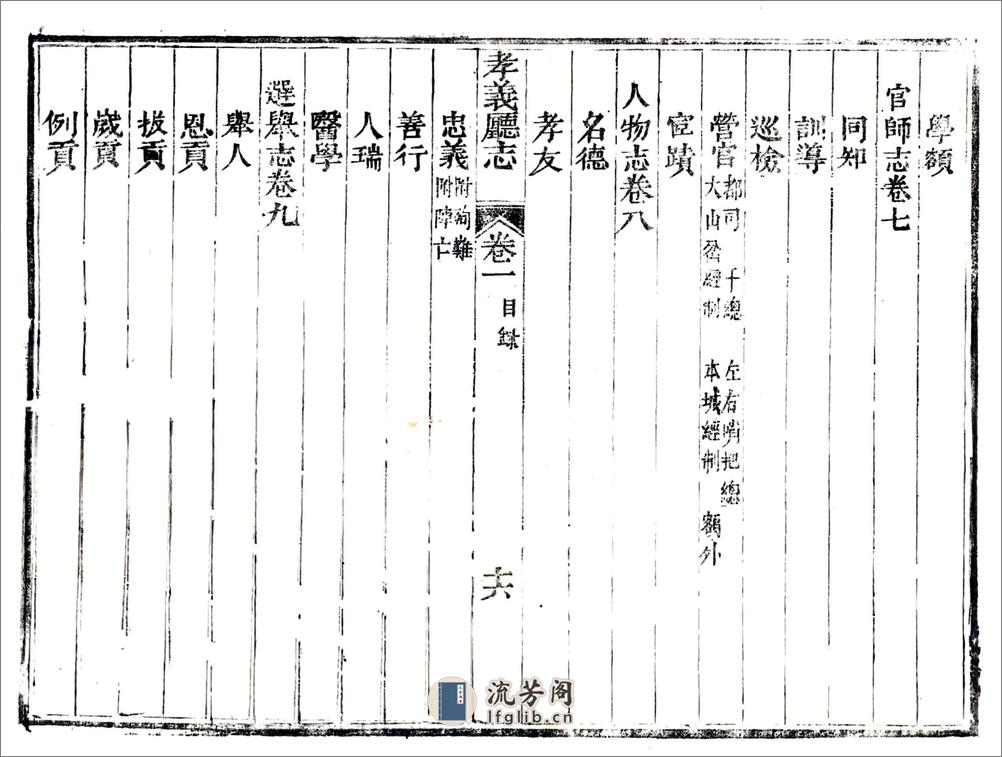 學額
官師志卷七
同知
訓導
巡檢
營官 都司 千總 左右哨把總 大山岔經制 本城經制 額外
宦蹟
人物志卷八
名德
孝友
孝義廳志 卷一 目錄 十六
忠義 附殉難 附陣亡
善行
人瑞
醫學
選舉志卷九
舉人
恩貢
拔貢
歲貢
例貢
流芳阁
lfglib.cn